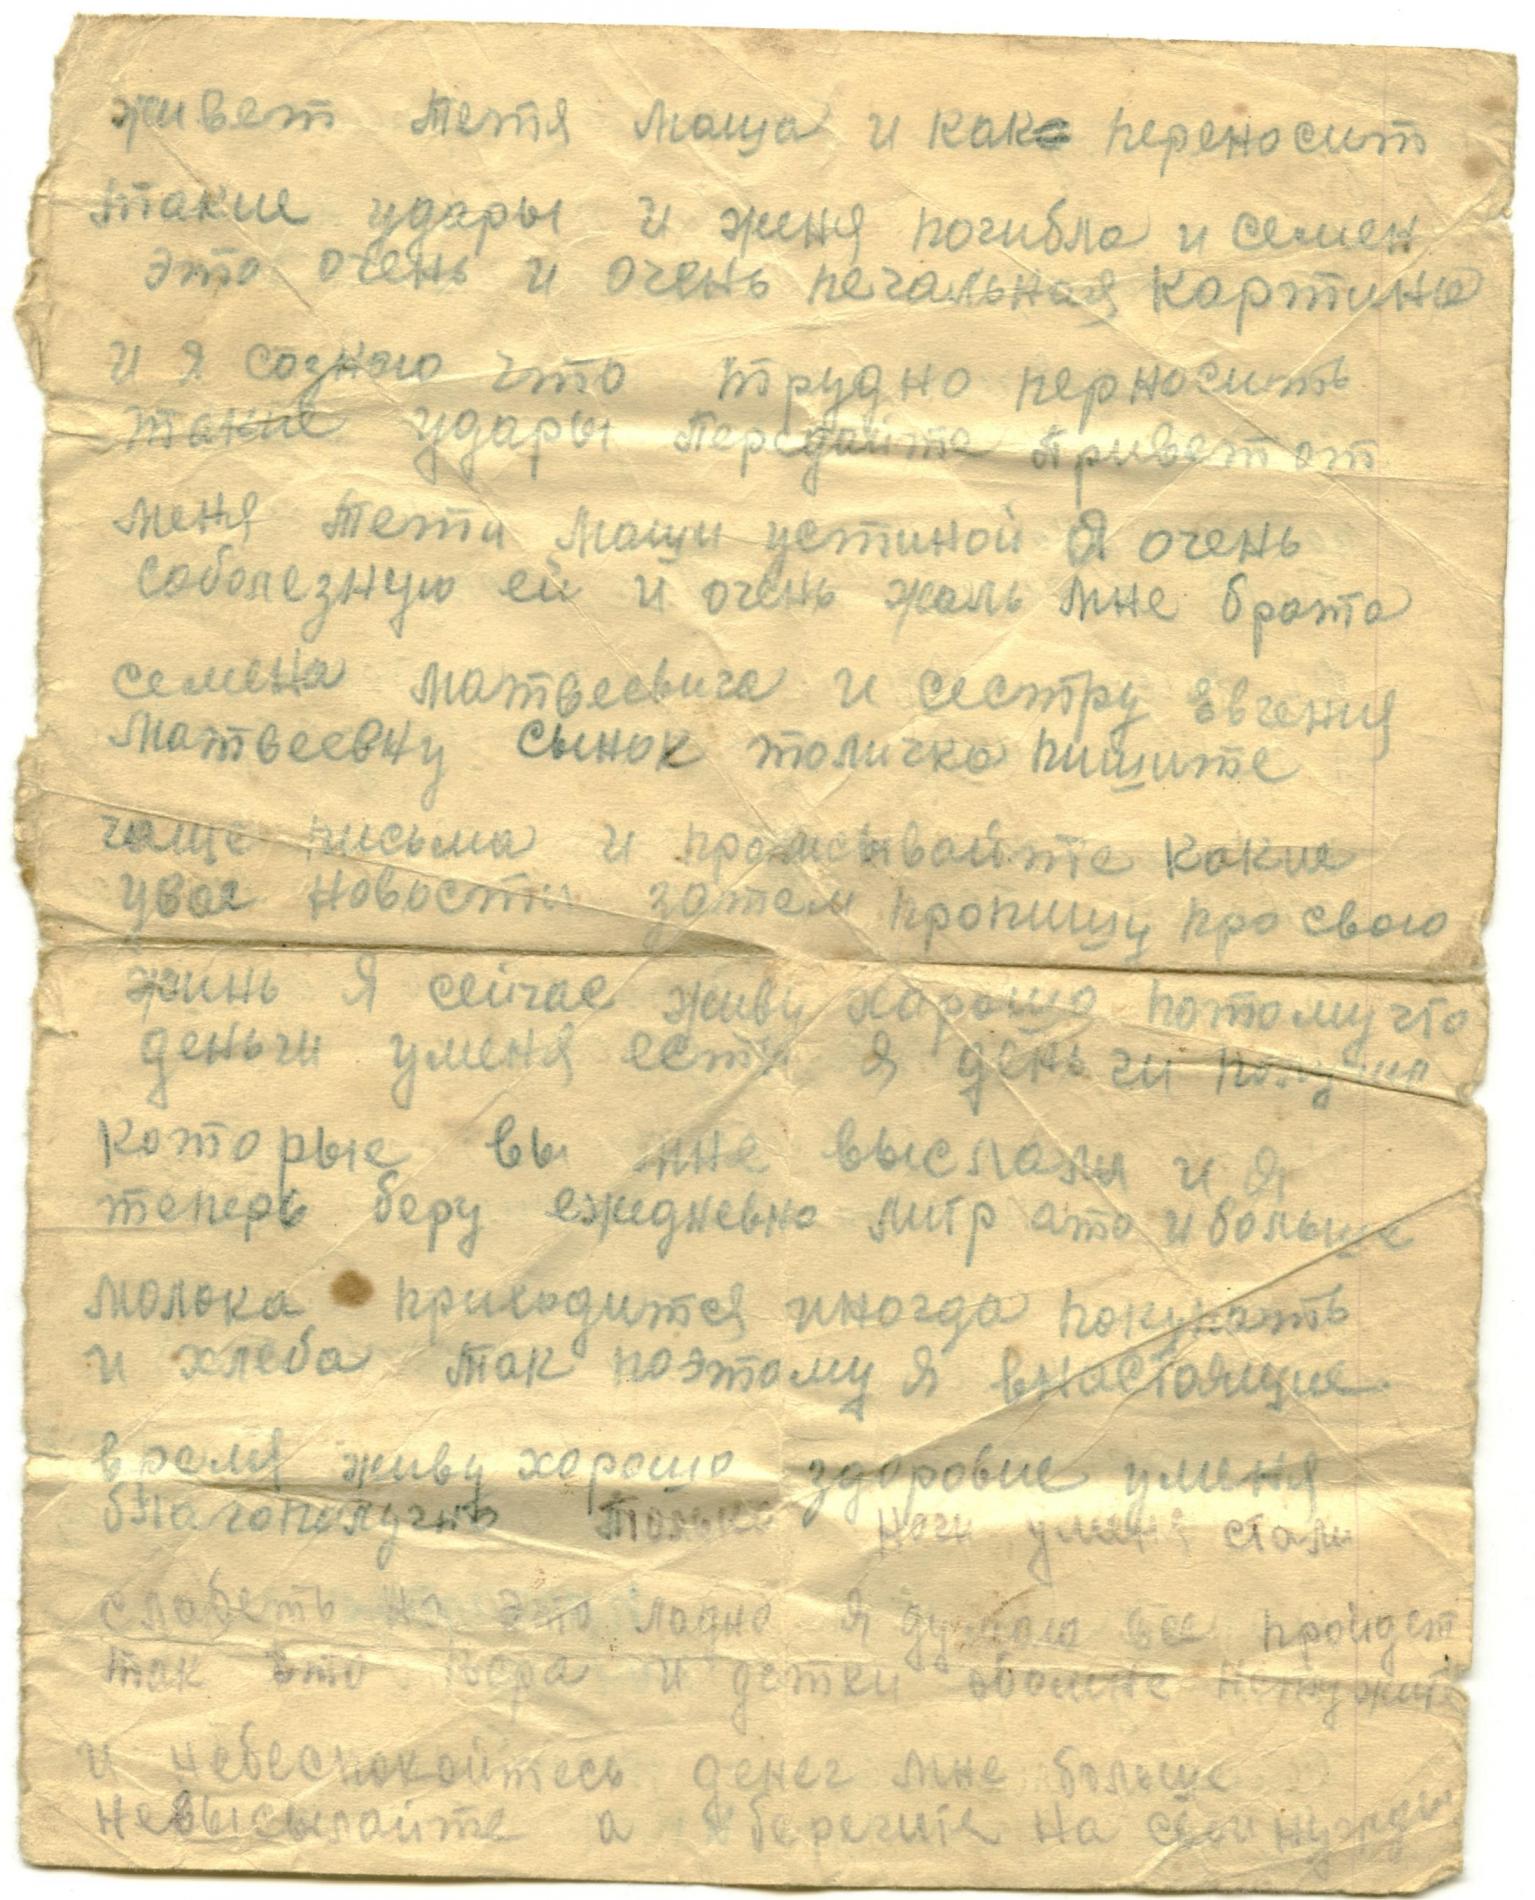 живет тетя маша и как переносит
такие удары и женя погибла и семен
это очень и очень печальная картина
и я сознаю что трудно перносить
такие удары передайте привет от
меня тети маши устиной Я очень
соболезную ей и очень жаль мне брата
семена матвеевича и сестру евгения
матвеевну сынок толичка пишите
чаще письма и прописывайте какие
увас новости затем пропишу про свою
жинь я сейчас живу харошо потому что
деньги уменя есть я деньги получил
которые вы мне выслали и я
теперь беру ежедневно литр ато и больше
молока приходится иногда покупать
и хлеба так поэтому я внастоящие
время живу хорошо здоровие уменя
благополучнь только ноги уменя стали
слабеть но это ладно я думаю все пройдет
так что вера и детки обомне нетужите
и небеспокойтесь денег мне больше
невысылайте а берегите на свои нужды